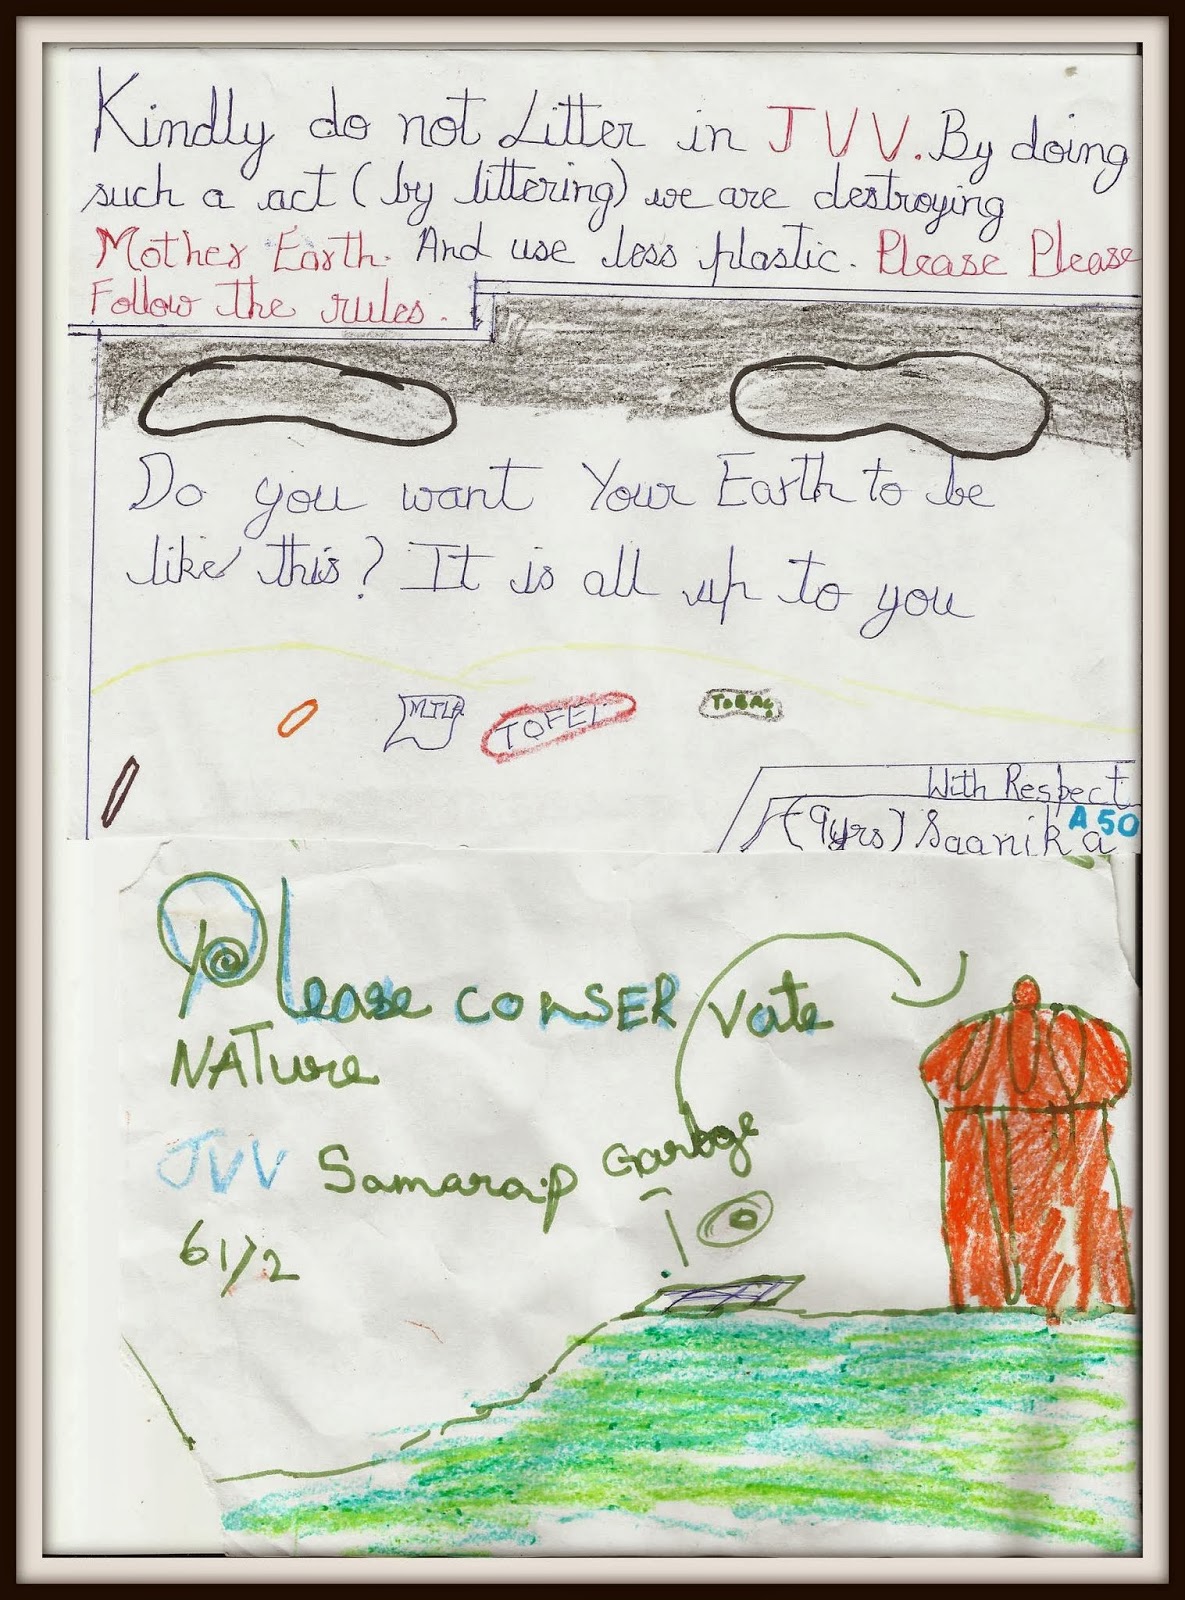 Kindly do not Litter in JVV. By doing
such a act (by littering) we are destroying
Mother Earth. And use less plastic. Please Please
Follow the rules.
Do you want Your Earth to be
like this? It is all up to you
MILK
TOFEE
With Respect
(9yrs) Saanika A50
Please CONSER Vate
NATure
JVV Samarap Garbage